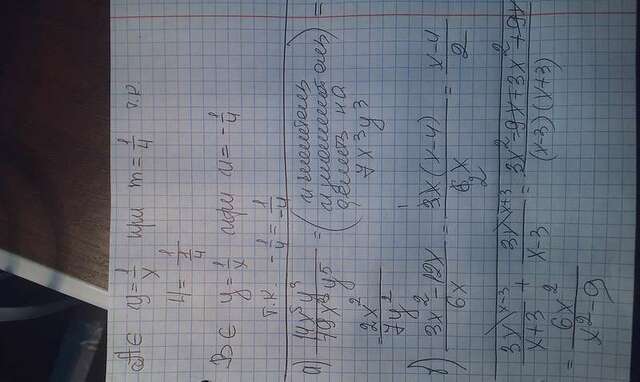 A ∈ y = 1/x при m = 1/4 т.к.
4 = 1/(1/4)
B ∈ y = 1/x при n = -1/4
т.к. -1/4 = 1/-4
а) 14x⁵y³/49x³y⁵ = (числитель и знаменатель делить на 7x³y³) =
= 2x²/7y²
3x² - 12x/6x = 3x(x-4)/6x = x-4/2
3x/x+3 + 3x/x-3 = 3x² - 9x + 3x² + 9x/(x-3)(x+3)
= 6x²/x² - 9